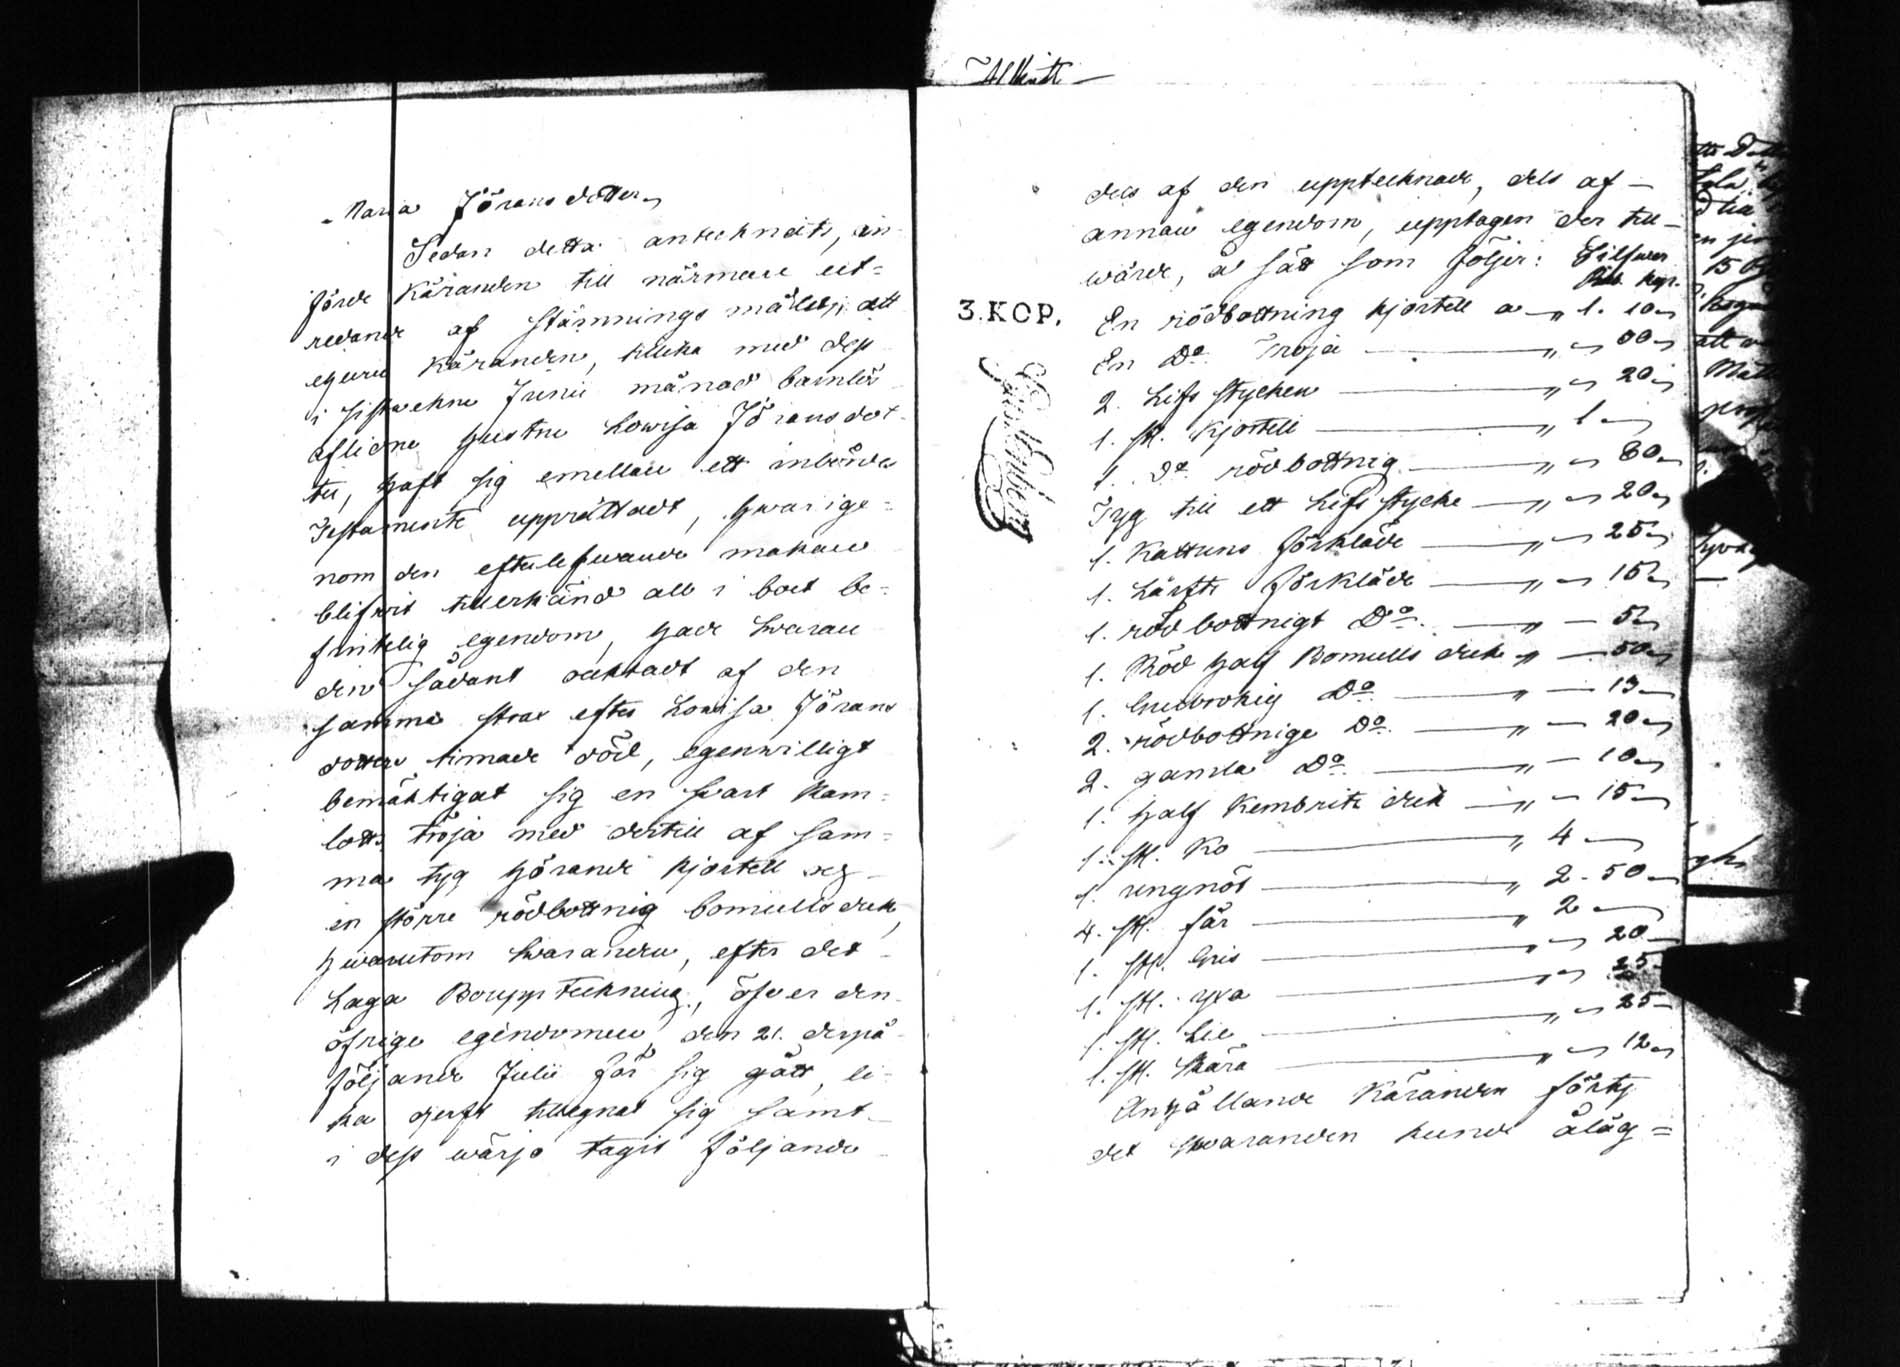 Maria Jöransdotter
Sedan detta antecknats, an-
förde Käranden till närmare ut-
redande af stämnings målet, att
Käranden, tillika med dess
i sistwekne Junii månad barnlös
aflidne hustru Lowisa Jöransdot-
ter, haft sig emellan ett inbördes
Testamente upprättadt, hwarige-
nom den efterlefwande makan
blifwit tillerkänd all i boet be-
fintelig egendom, hade Swaran-
den sådant oaktadt af den
samma strax efter Lowisa Jörans
dotters timade död, egenwilligt
bemäktigat sig en swart Kam-
lotts tröja med dertill af sam-
ma tyg hörande kjortell och
en större rödbottnig bomullsduk,
hwarutom Swaranden, efter det
Laga Bouppteckning, öfver den
öfrige egendomen den 21. derpå
följande Julii för sig gått, li-
ka djerft tillegnat sig samt
i dess wärjo tagit följande
dels af den upptecknade, dels af
annan egendom, upptagen der till
wärde, å sätt som följer: Silfwer
Rub. kop.
3. KOP.
En rödbottning kjortell a " 1. 10
En Do Tröja " 00
2. Lifs stycken " 20
1. st. Kjortell " 1
1. Do rödbottnig " 60
Tyg till ett Lifs stycke " 20
1. Kattuns förkläde " 25
1. Lärfts förkläde " 15
1. rödbottnigt Do " 5
1. Röd half Bomulls duk " 50
1. Do " 13
2. rödbottnige Do " 20
2. gamla Do " 10
1. half Kembriks duk " 15
1. st. Ko " 4
1. ungnöt " 2. 50
4. st. får " 2
1. st. Gris " 20
1. st. yxa " 25
1. st. Lie " 25
1. st. Skära " 12
Anhållande Käranden förty
det Swaranden kunde åläg=